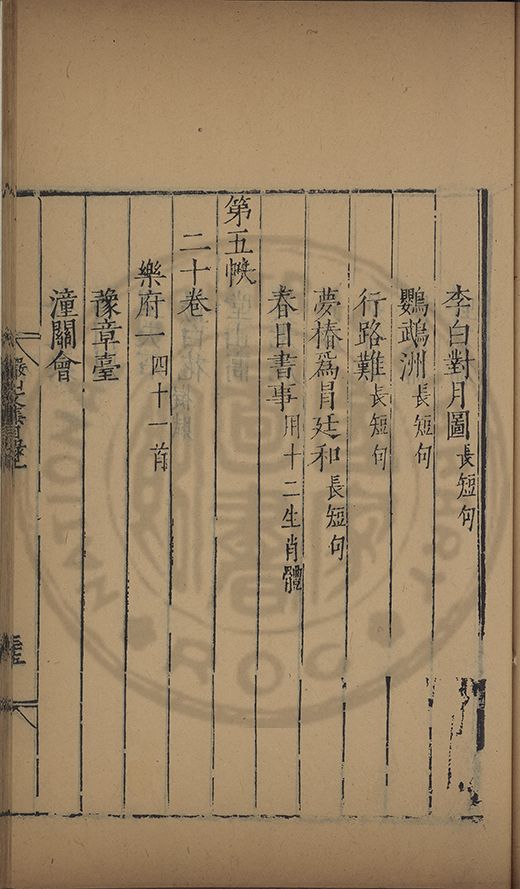 李白對月圖長短句
鸚鵡洲長短句
行路難長短句
夢椿爲胃廷和長短句
春日書事用十二生肖體
第五帙
二十卷
樂府一四十一首
豫章臺
潼關會